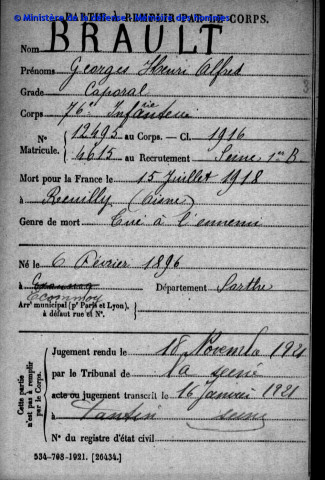 © Ministère de la défense - Mémoire des hommes
PARTIE À REMPLIR PAR LE CORPS.
Nom BRAULT
Prénoms Georges Henri Alfred
Grade Caporal
Corps 76e Infanterie
N° 12495 au Corps. — Cl. 1916
Matricule. 4615 au Recrutement Seine 1er B.
Mort pour la France le 15 Juillet 1918
à Reuilly (Aisne)
Genre de mort Tué à l'ennemi
Né le 6 Février 1896
à Ecommoy Département Sarthe
Arrt municipal (pr Paris et Lyon),
à défaut rue et N°.
Cette partie n'est pas à remplir par le Corps.
Jugement rendu le 18 Novembre
par le Tribunal de la Seine
acte ou jugement transcrit le 16 Janvier 1921
à Pantin Seine
N° du registre d'état civil
534-708-1921. [26434.]